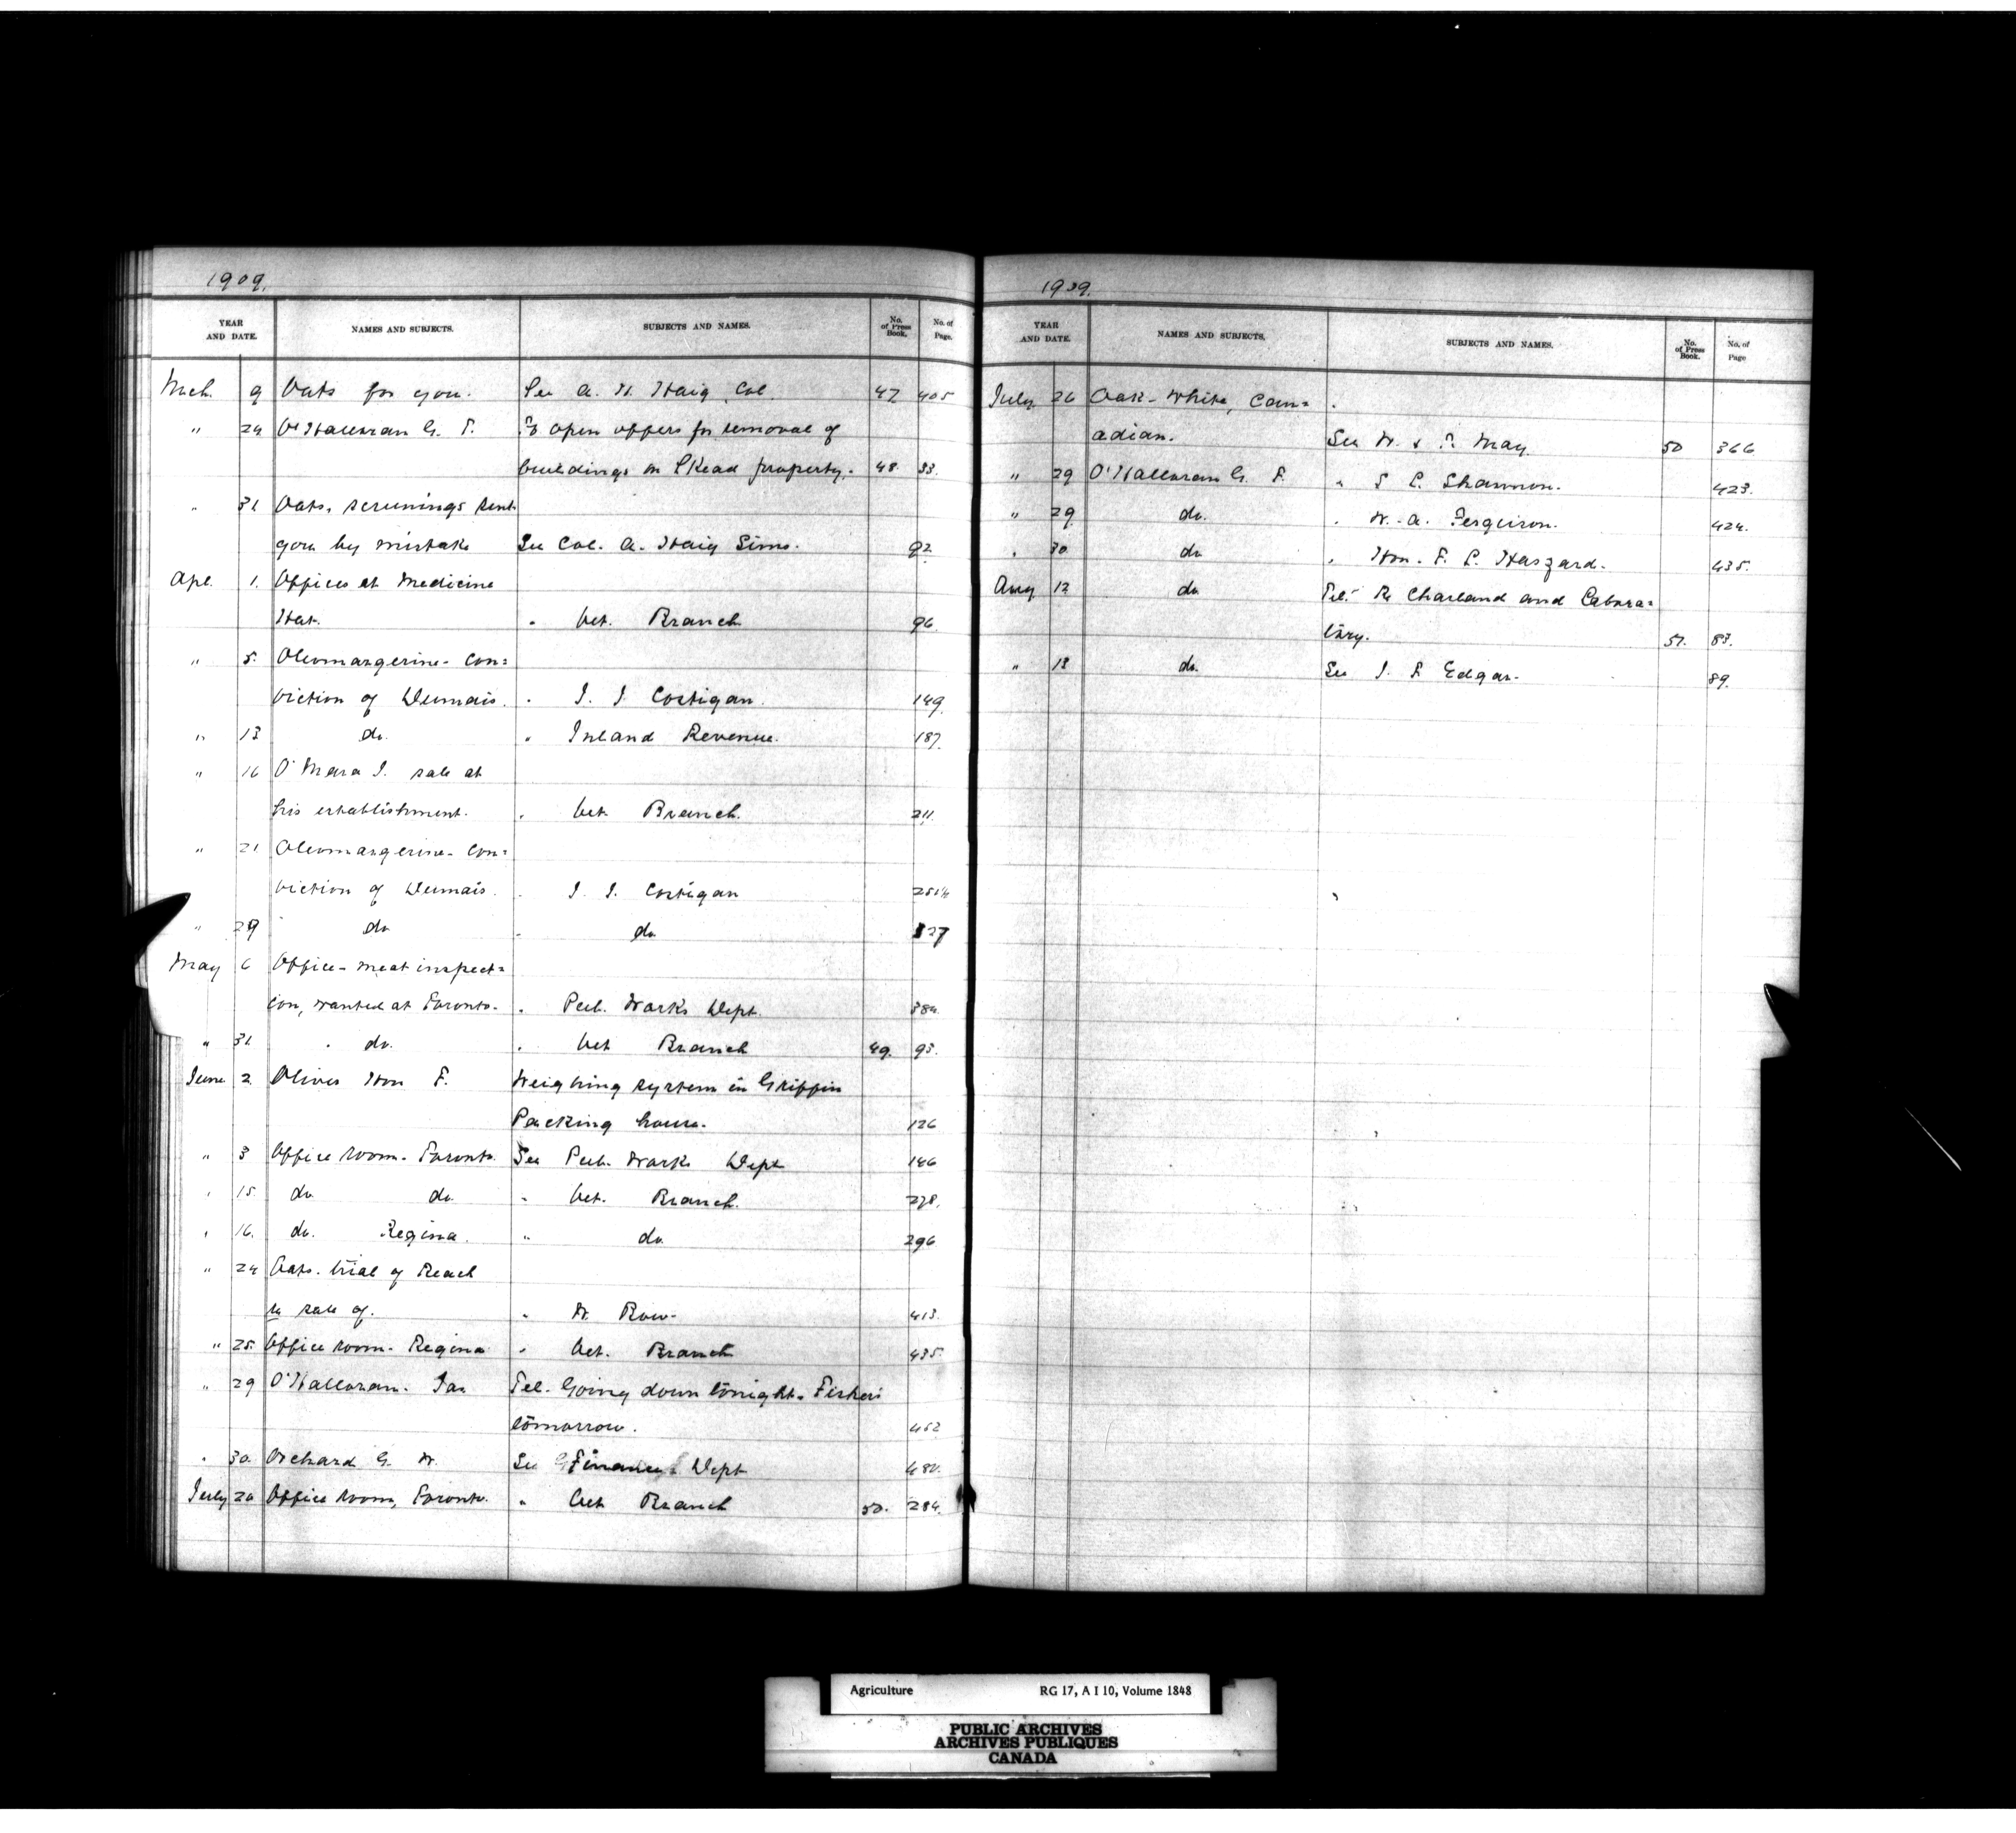 1909.
YEAR AND DATE. NAMES AND SUBJECTS. SUBJECTS AND NAMES. No. of Press Book. No. of Page.
Mch. 9 Oats for you. See A. H. Haig Col. 47 405
" 24 O'Halloran G. F. To open offers for removal of
buildings on Skead property. 48 33.
" 31 Oats, screenings sent
you by mistake See Col. A. Haig Sims. 92
Apl. 1. Offices at Medicine
Hat. " Vet. Branch 96.
" 5. Oleomargerine - Con=
viction of Dumais. " J. J. Costigan. 149.
" 13 do. " Inland Revenue. 187.
" 16 O'Mara J. sale at
his establishment. " Vet. Branch. 211.
" 21 Oleomargerine - Con=
viction of Dumais. " J. J. Costigan 251½
" 29 do " do. 327
May 6 Office - meat inspect=
ion, wanted at Toronto. " Pub. Works Dept. 384.
" 31. " do. " Vet Branch 49. 93.
June 2. Oliver Hon F. Weighing system in Griffin
Packing house. 126
" 3 Office room - Toronto. See Pub. Works Dept 146
" 15. do do. " Vet. Branch. 278.
" 16. do. Regina. " do. 296
" 24 Oats. trial of Reach
re sale of. " W. Row. 413.
" 25. Office room - Regina " Vet. Branch 435.
" 29 O'Halloran. Jas Tel. Going down tonight. Fisher
tomorrow. 452
" 30. Orchard G. W. See Finance Dept 480.
July 20 Office room, Toronto. " Vet Branch 50. 284.
1909.
YEAR AND DATE. NAMES AND SUBJECTS. SUBJECTS AND NAMES. No. of Press Book. No. of Page
July 26 Oak - White, Can=
adian. See W. & T. May. 50 366
" 29 O'Halloran G. F. " S L. Shannon. 423.
" 29. do. " W. A. Ferguson. 424.
" 30 do " Hon. F. L. Haszard. 435.
Aug 12 do Tel. Re Charland and Labora=
tory. 51. 83.
" 13 do. See J. F Edgar. 89.
Agriculture RG 17, A I 10, Volume 1848
PUBLIC ARCHIVES
ARCHIVES PUBLIQUES
CANADA